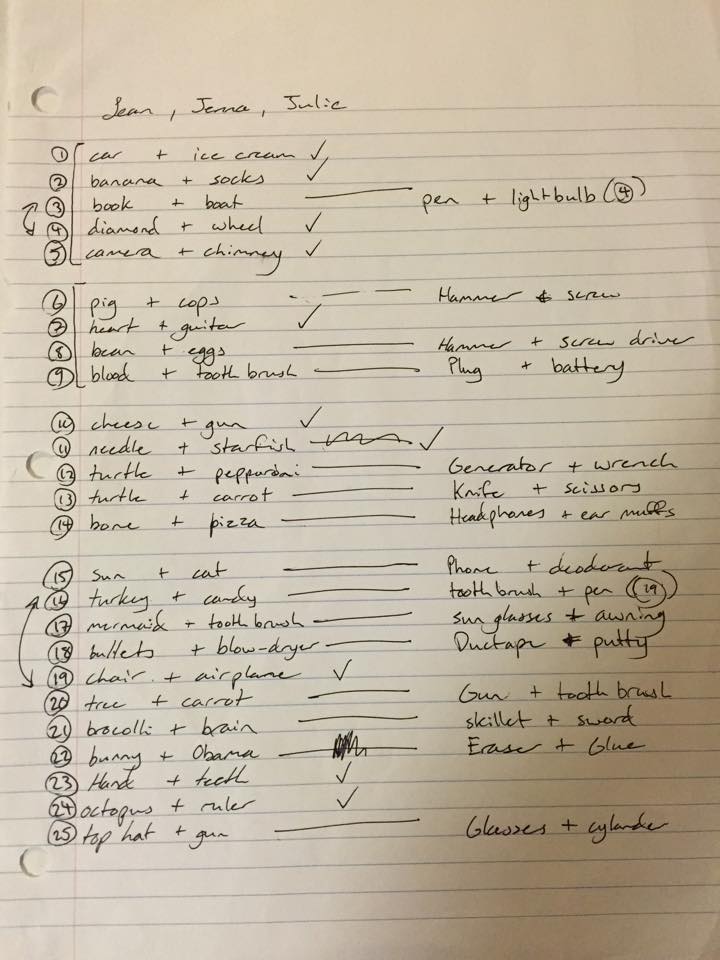 Sean, Jenna, Julie
① car + ice cream ✓
② banana + socks ✓
③ book + boat — pen + lightbulb (④)
④ diamond + wheel ✓
⑤ camera + chimney ✓
⑥ pig + cops — Hammer + screw
⑦ heart + guitar ✓
⑧ bean + eggs — Hammer + screw driver
⑨ blood + toothbrush — Plug + battery
⑩ cheese + gun ✓
⑪ needle + starfish ✓
⑫ turtle + pepparoni — Generator + wrench
⑬ turtle + carrot — Knife + scissors
⑭ bone + pizza — Headphones + ear muffs
⑮ sun + cat — Phone + deoderant
⑯ turkey + candy — toothbrush + pen (⑲)
⑰ mermaid + toothbrush — sunglasses + awning
⑱ bullets + blow-dryer — Ductape + putty
⑲ chair + airplane ✓
⑳ tree + carrot — Gun + toothbrush
㉑ brocolli + brain — skillet + sword
㉒ bunny + Obama — Eraser + Glue
㉓ Hand + teeth ✓
㉔ octopus + ruler ✓
㉕ top hat + gun — Glasses + cylander